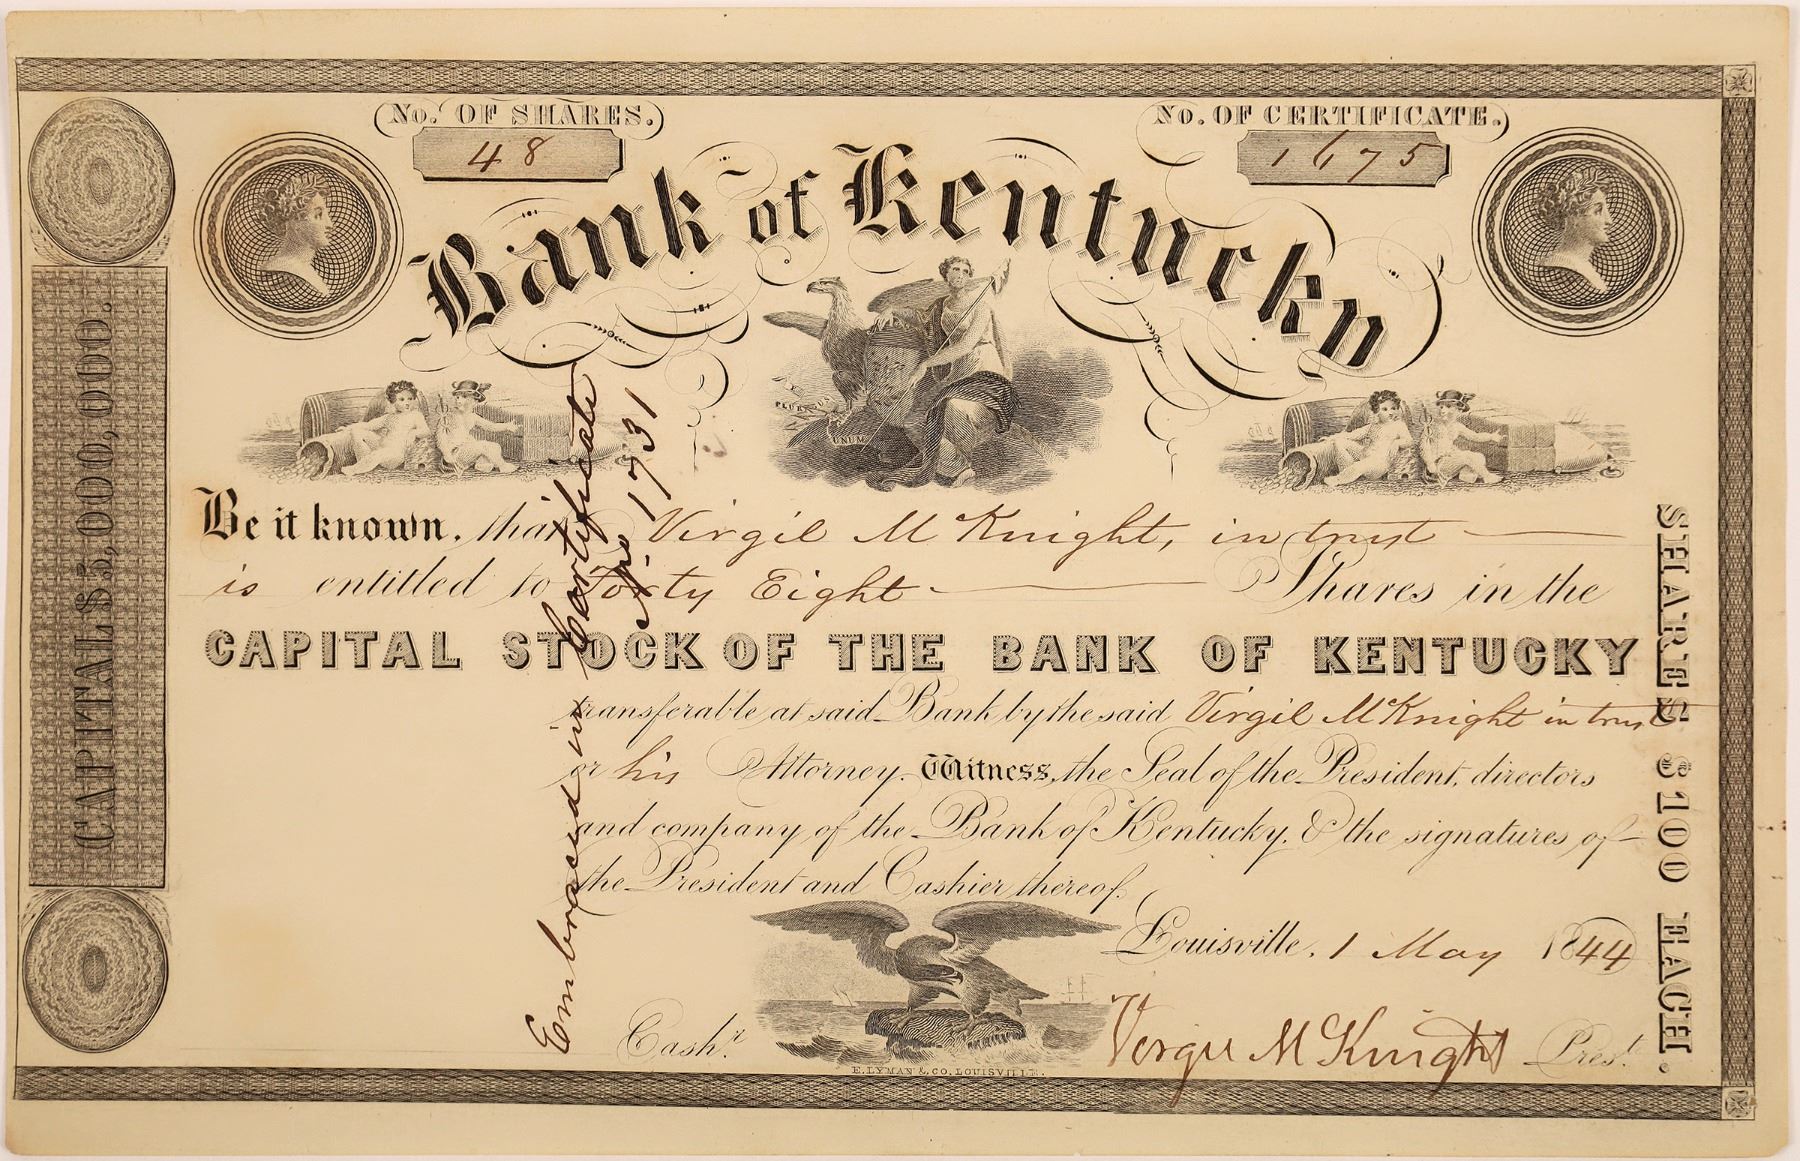 No. OF SHARES.
48
No. OF CERTIFICATE.
1675
Bank of Kentucky
CAPITAL $5,000,000.
PLURIBUS
UNUM
Be it known, that Virgil McKnight, in trust
is entitled to Forty Eight Shares in the
CAPITAL STOCK OF THE BANK OF KENTUCKY
transferable at said Bank by the said Virgil McKnight in trust
or his Attorney. Witness, the Seal of the President, directors
and company of the Bank of Kentucky, & the signatures of
the President and Cashier thereof.
Louisville, 1 May 1844
Cashr. Virgil McKnight Prest.
E. LYMAN & CO. LOUISVILLE.
SHARES $100 EACH.
Embraced in Certificate
No 1731